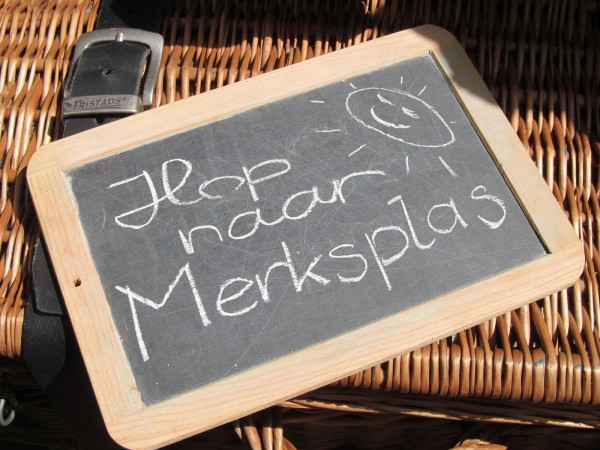 FRISTADS
Hop
naar
Merksplas